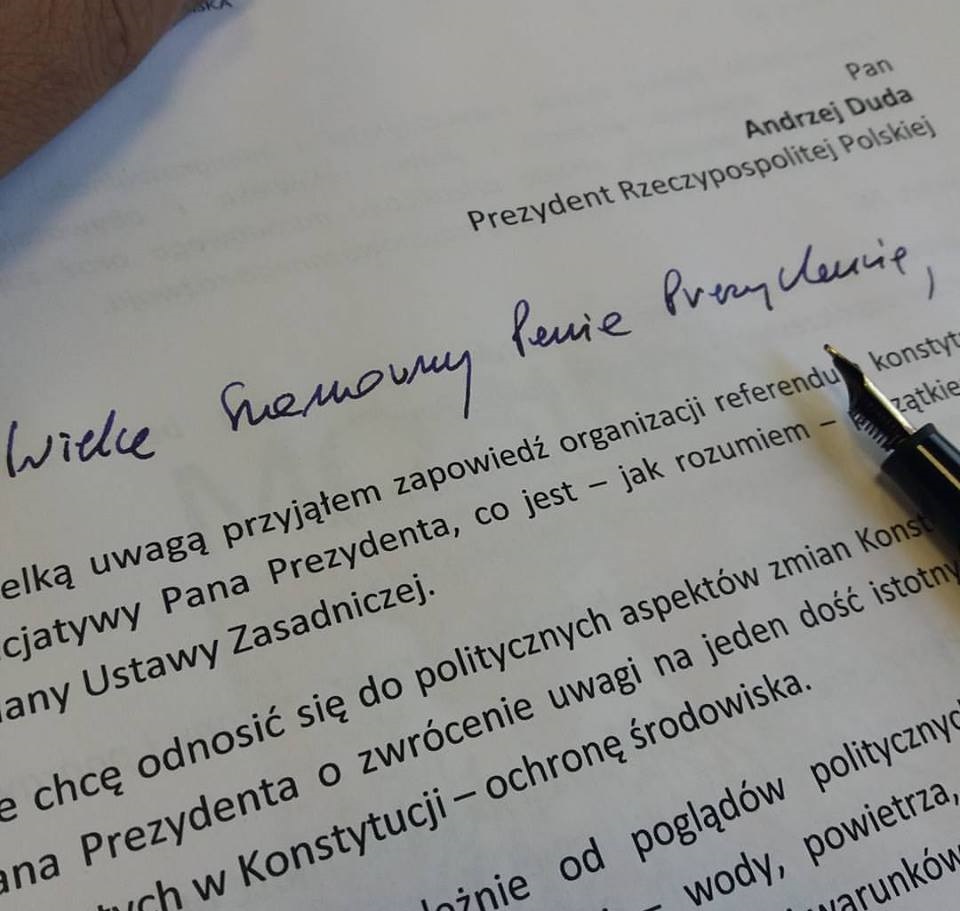 SKA
Pan
Andrzej Duda
Prezydent Rzeczypospolitej Polskiej
Wielce Szanowny Panie Prezydencie,
elką uwagą przyjąłem zapowiedź organizacji referendu konstyt
cjatywy Pana Prezydenta, co jest – jak rozumiem – zątkie
any Ustawy Zasadniczej.
e chcę odnosić się do politycznych aspektów zmian Konst
ana Prezydenta o zwrócenie uwagi na jeden dość istotny
tych w Konstytucji – ochronę środowiska.
leżnie od poglądów politycznyc
– wody, powietrza,
warunków